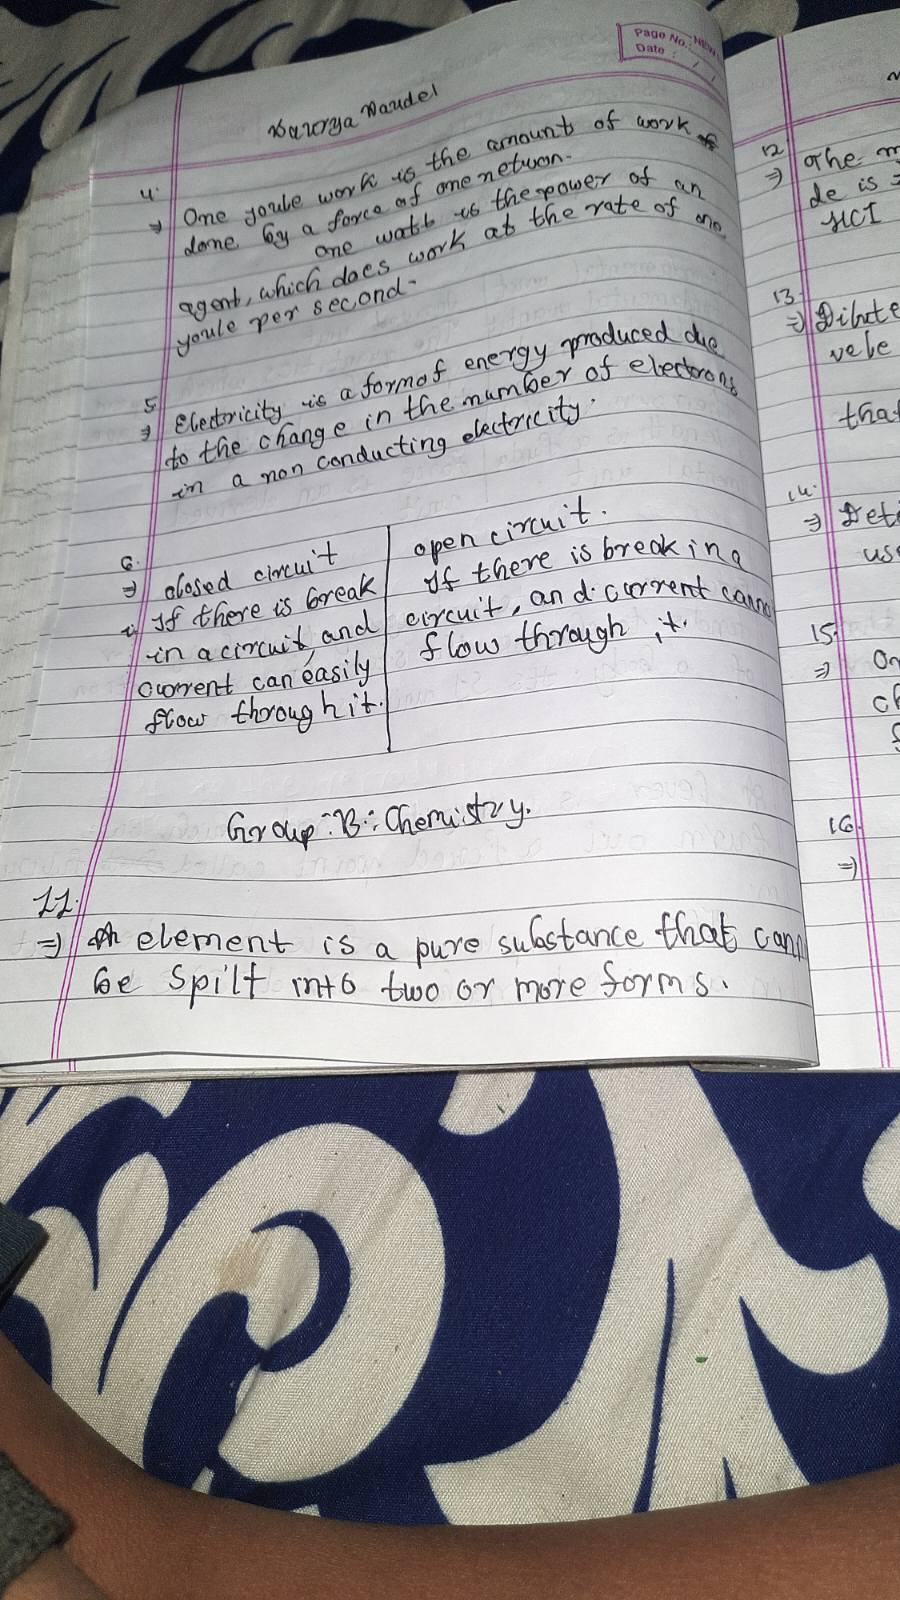 Page No.:
Date : / /
4.
⇒ One joule work is the amount of work
done by a force of one netwon.
one watt is the power of an
agent, which does work at the rate of one
joule per second.
5.
⇒ Electricity is a form of energy produced due
to the change in the number of electrons
in a non conducting electricity.
6.
⇒ closed circuit
If there is break
in a circuit, and
current can easily
flow through it.
open circuit.
If there is break in a
circuit, and current
flow through it.
Group :B: Chemistry.
11.
⇒ An element is a pure substance that
be spilt into two or more forms.
12.
⇒ The
de is
HCl
13.
⇒ Dilute
that
14.
⇒
15.
⇒
16.
⇒